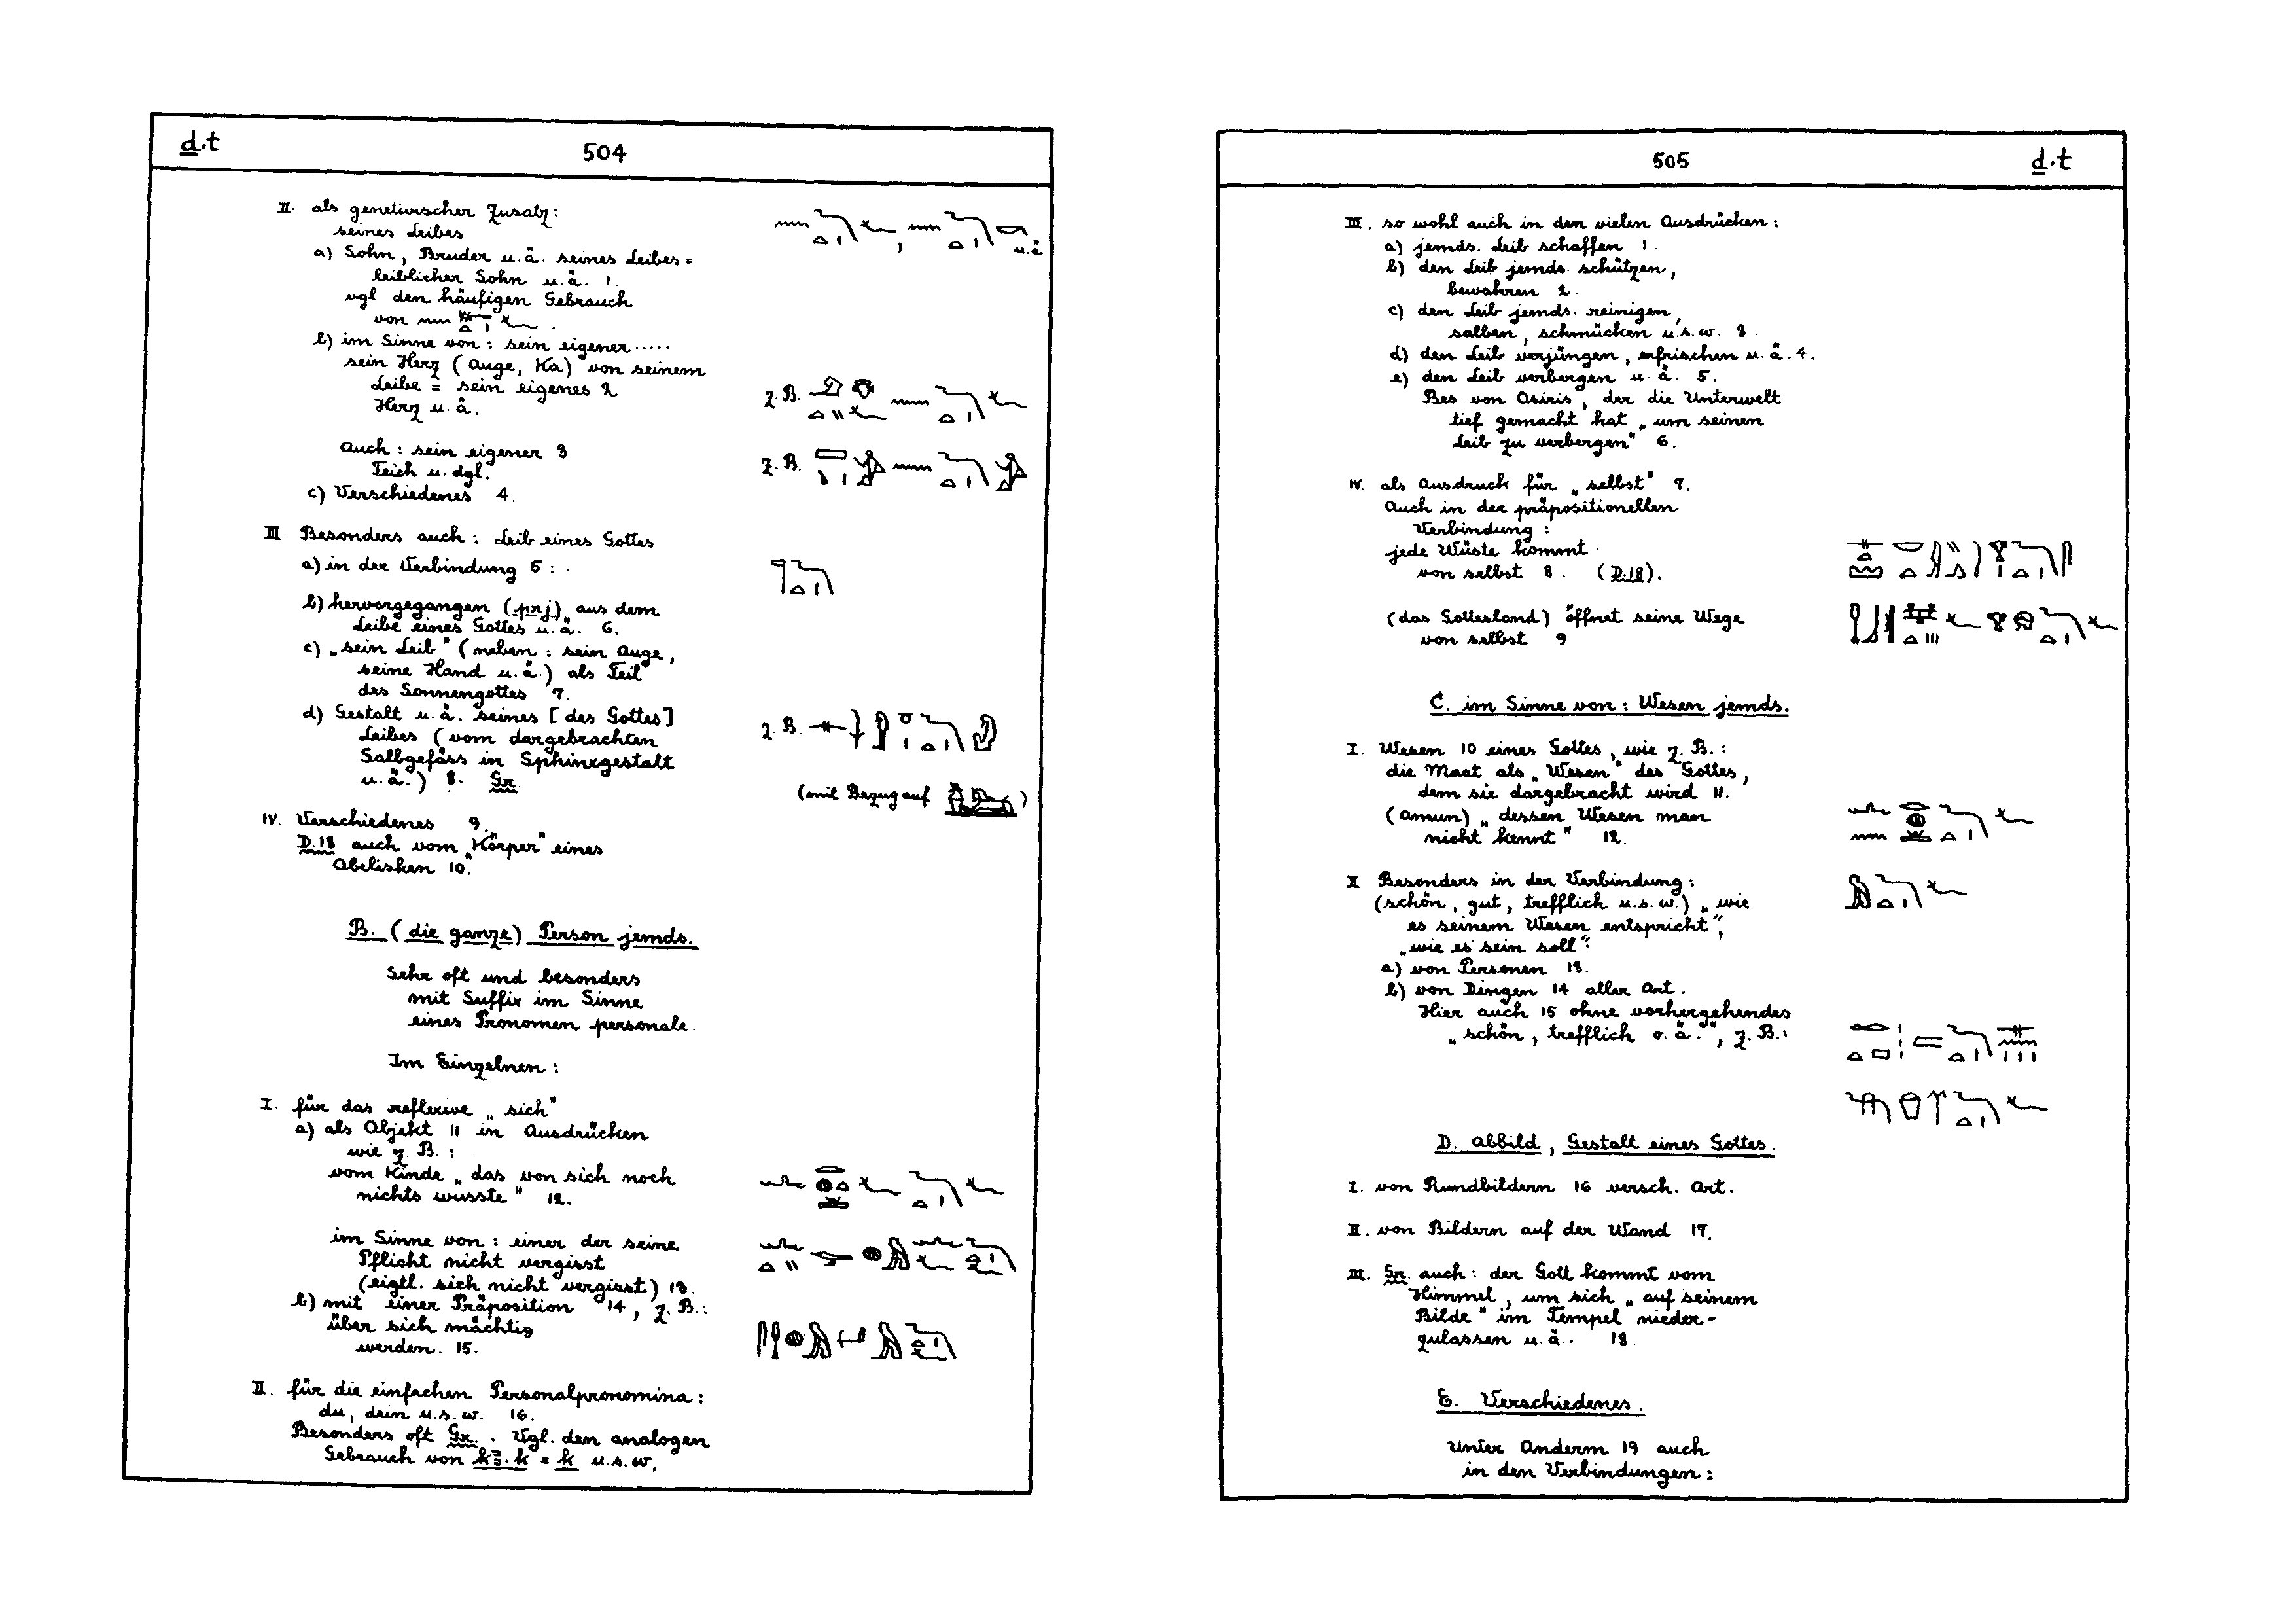 ḏ.t
504
II. als genetivischer Zusatz:
seines Leibes
u.ä
a) Sohn, Bruder u.ä. seines Leibes =
leiblicher Sohn u.ä. 1.
vgl den häufigen Gebrauch
von
b) im Sinne von: sein eigener.....
sein Herz (Auge, Ka) von seinem
Leibe = sein eigenes 2
Herz u.ä.
z.B.
Auch: sein eigener 3
Teich u. dgl.
z.B.
c) Verschiedenes 4.
III Besonders auch: Leib eines Gottes
a) in der Verbindung 5:
b) hervorgegangen (prj) aus dem
Leibe eines Gottes u.ä. 6.
c) „sein Leib" (neben: sein Auge,
seine Hand u.ä.) als Teil
des Sonnengottes 7.
d) Gestalt u.ä. seines [des Gottes]
Leibes (vom dargebrachten
Salbgefäss in Sphinxgestalt
u.ä.) 8. Gr.
z.B.
(mit Bezug auf )
IV. Verschiedenes 9.
D.18 auch vom „Körper" eines
Obelisken 10.
B. (die ganze) Person jemds.
Sehr oft und besonders
mit Suffix im Sinne
eines Pronomen personale.
Im Einzelnen:
I. für das reflexive „sich"
a) als Objekt 11 in Ausdrücken
wie z.B.:
vom Kinde „das von sich noch
nichts wusste" 12.
im Sinne von: einer der seine
Pflicht nicht vergisst
(eigtl. sich nicht vergisst) 13.
b) mit einer Präposition 14, z.B.:
über sich mächtig
werden. 15.
II. für die einfachen Personalpronomina:
du, dein u.s.w. 16.
Besonders oft Gr. Vgl. den analogen
Gebrauch von kꜣ.k = k u.s.w.
505
ḏ.t
III. so wohl auch in den vielen Ausdrücken:
a) jemds. Leib schaffen 1.
b) den Leib jemds. schützen,
bewahren 2.
c) den Leib jemds. reinigen,
salben, schmücken u.s.w. 3.
d) den Leib verjüngen, erfrischen u.ä. 4.
e) den Leib verbergen u.ä. 5.
Bes. von Osiris, der die Unterwelt
tief gemacht hat „um seinen
Leib zu verbergen" 6.
IV. als Ausdruck für „selbst" 7.
Auch in der präpositionellen
Verbindung:
jede Wüste kommt
von selbst 8. (D.18).
(das Gottesland) öffnet seine Wege
von selbst 9
C. im Sinne von: Wesen jemds.
I. Wesen 10 eines Gottes, wie z.B.:
die Maat als „Wesen" des Gottes,
dem sie dargebracht wird 11.
(Amun) „dessen Wesen man
nicht kennt" 12.
II Besonders in der Verbindung:
(schön, gut, trefflich u.s.w.) „wie
es seinem Wesen entspricht",
„wie es sein soll":
a) von Personen 13.
b) von Dingen 14 aller Art.
Hier auch 15 ohne vorhergehendes
„schön, trefflich o.ä.", z.B.:
D. Abbild, Gestalt eines Gottes.
I. von Rundbildern 16 versch. Art.
II. von Bildern auf der Wand 17.
III. Gr. auch: der Gott kommt vom
Himmel, um sich „auf seinem
Bilde" im Tempel nieder-
zulassen u.ä. 18.
E. Verschiedenes.
Unter Anderm 19 auch
in den Verbindungen: